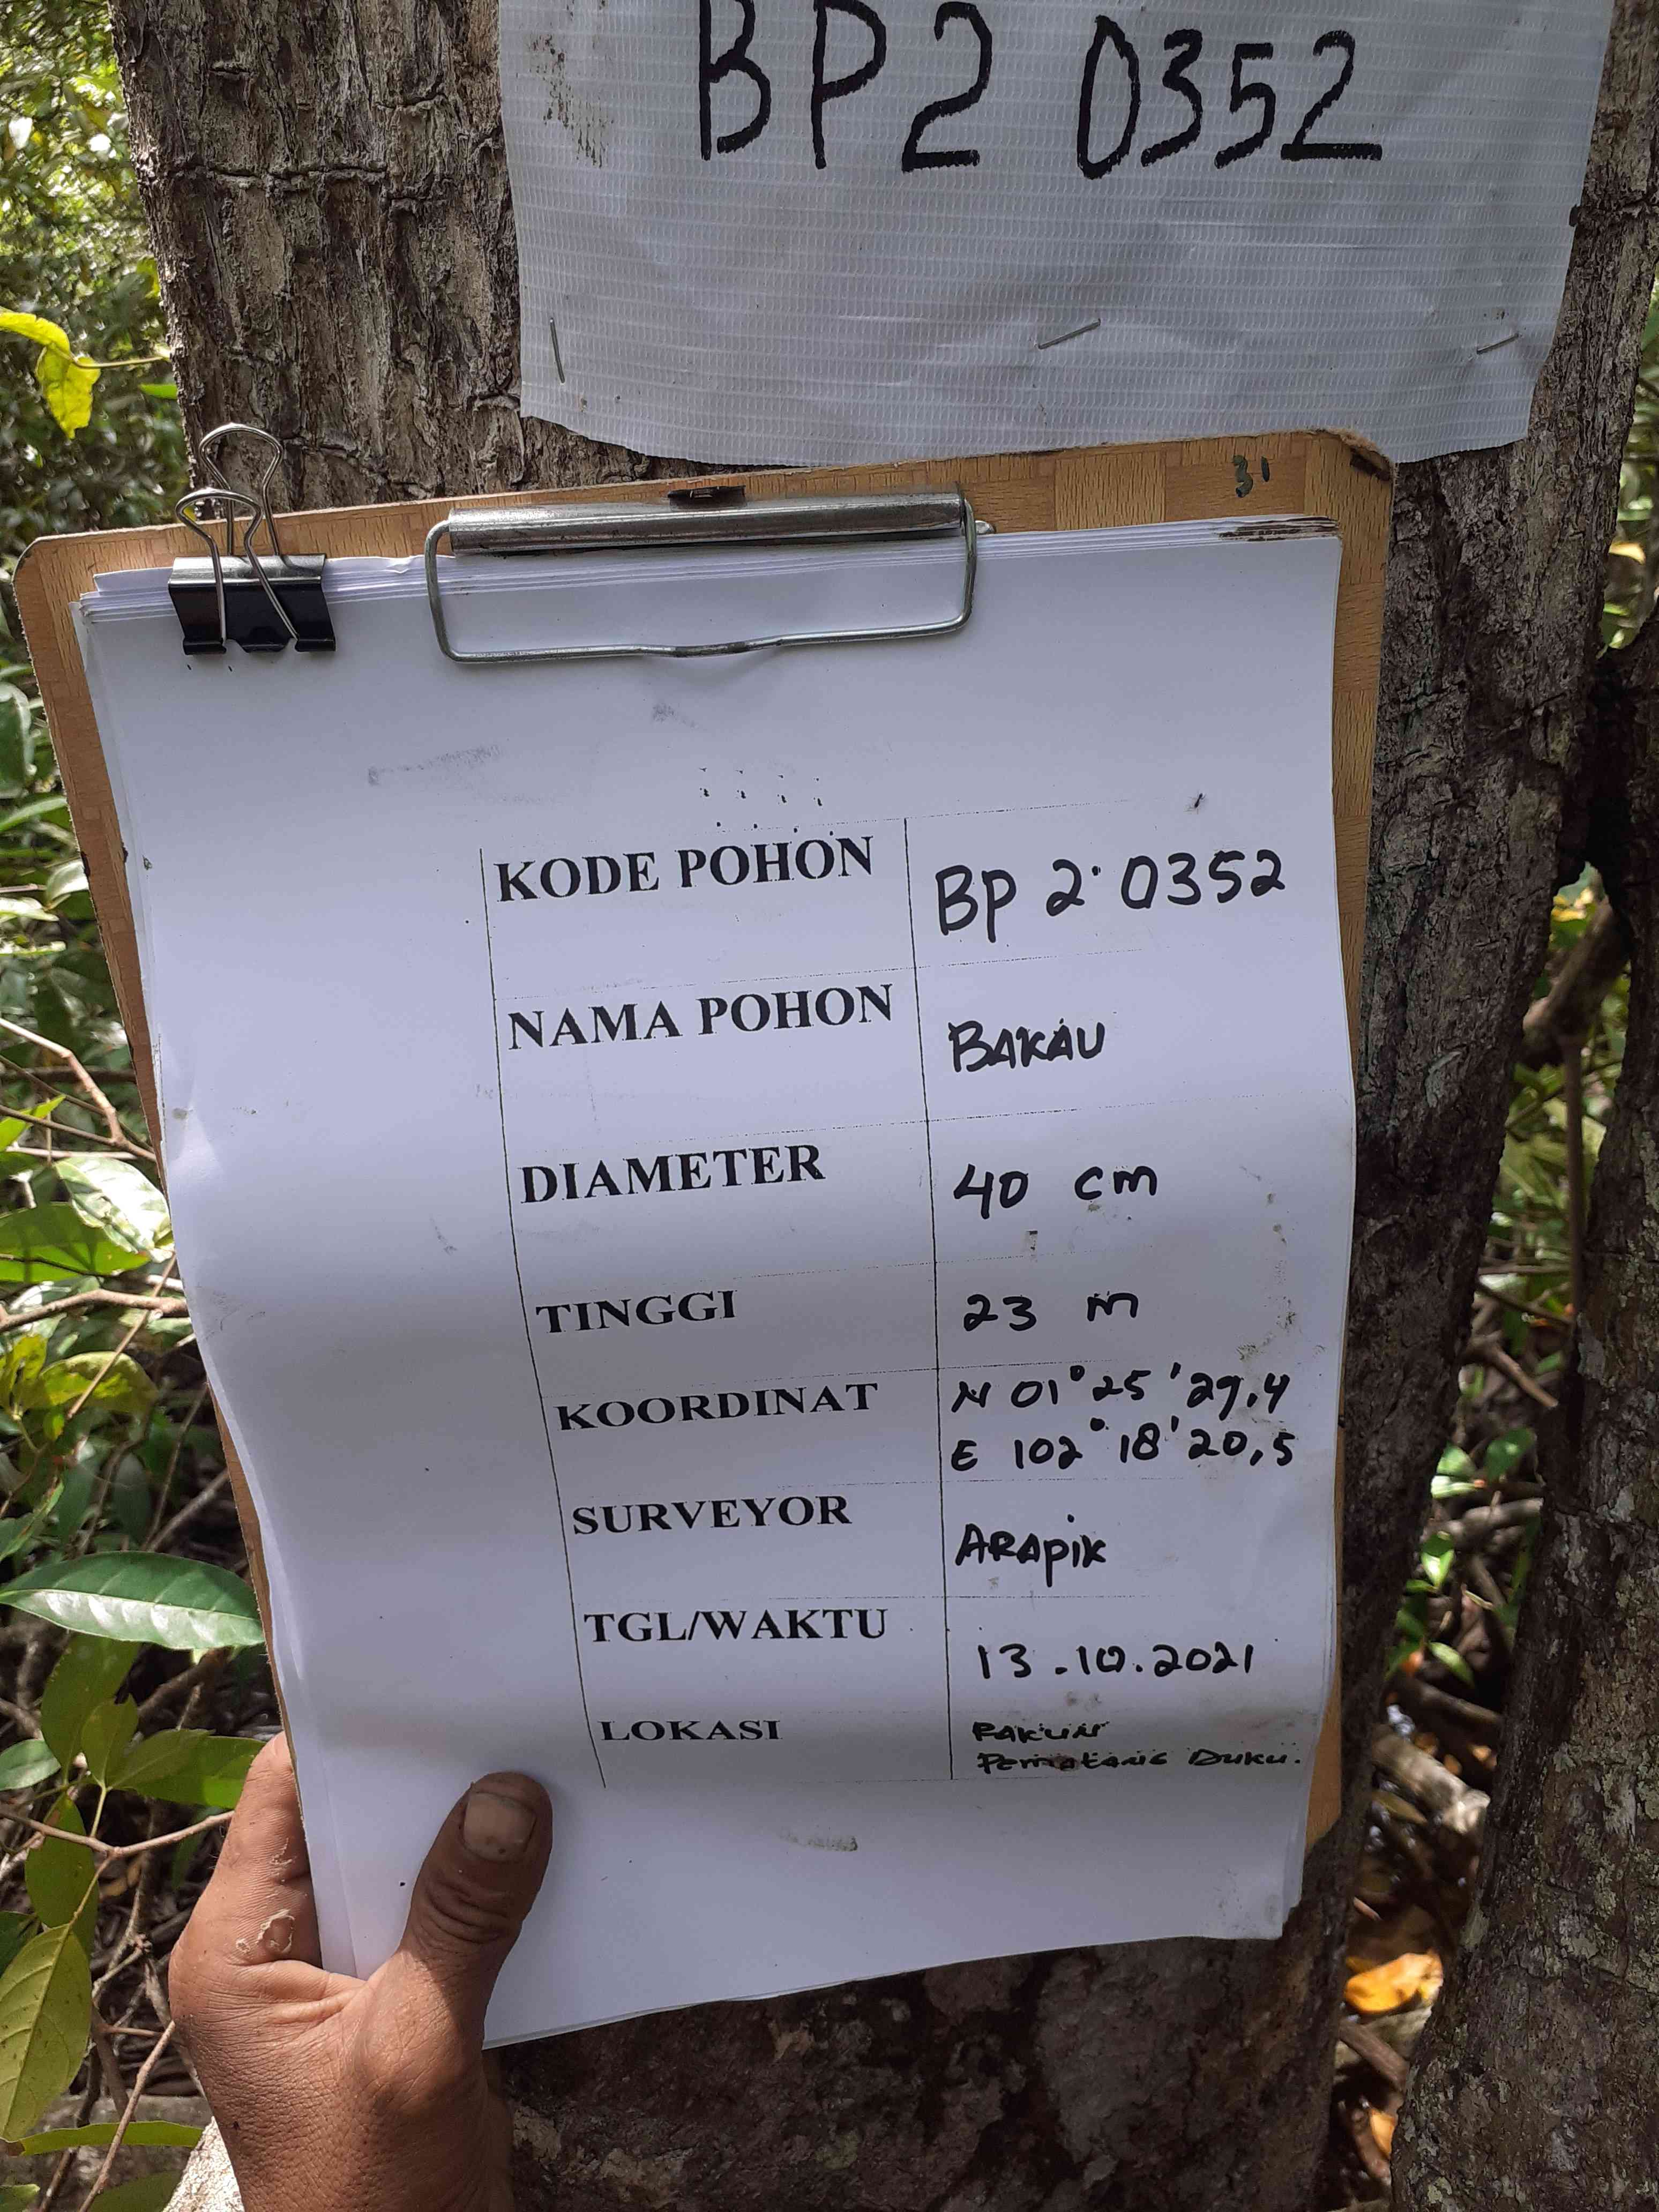 BP2 0352
31
KODE POHON BP 2 0352
NAMA POHON BAKAU
DIAMETER 40 cm
TINGGI 23 m
KOORDINAT N 01°25'29,4
E 102°18'20,5
SURVEYOR ARAPIK
TGL/WAKTU 13.10.2021
LOKASI PAKUN
PEMATANG DUKU.